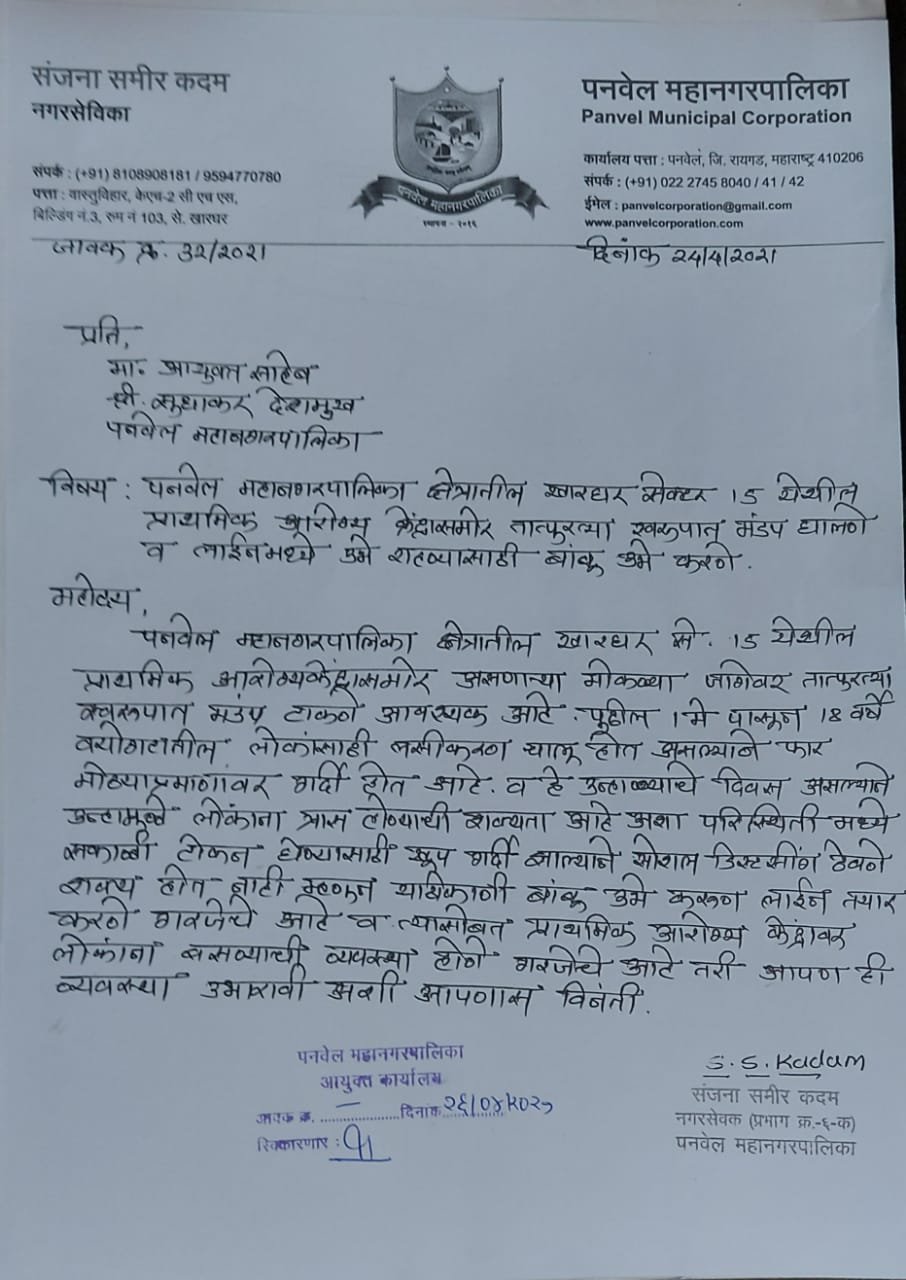 संजना समीर कदम
नगरसेविका
संपर्क : (+91) 8108908181 / 9594770780
पत्ता : वास्तुविहार, केएच-2 सी एच एस,
बिल्डिंग नं.3, रुम नं 103, से. खारघर
पनवेल महानगरपालिका
स्थापना - २०१६
पनवेल महानगरपालिका
Panvel Municipal Corporation
कार्यालय पत्ता : पनवेल, जि. रायगड, महाराष्ट्र 410206
संपर्क : (+91) 022 2745 8040 / 41 / 42
ईमेल : panvelcorporation@gmail.com
www.panvelcorporation.com
जावक क्र. 32/2021
दिनांक 24/4/2021
प्रति,
मा. आयुक्त साहेब
श्री. सुधाकर देशमुख
पनवेल महानगरपालिका
विषय : पनवेल महानगरपालिका क्षेत्रातील खारघर सेक्टर 15 येथील
प्राथमिक आरोग्य केंद्रासमोर तात्पुरत्या स्वरुपात मंडप घालणे
व लाईनमध्ये उभे राहण्यासाठी बांबू उभे करणे.
महोदय,
पनवेल महानगरपालिका क्षेत्रातील खारघर से. 15 येथील
प्राथमिक आरोग्यकेंद्रासमोर असणाऱ्या मोकळ्या जागेवर तात्पुरत्या
स्वरूपात मंडप टाकणे आवश्यक आहे. पुढील 1 मे पासून 18 वर्षे
वयोगटातील लोकांसाही लसीकरण चालू होत असल्याने फार
मोठ्याप्रमाणांवर गर्दी होत आहे. व हे उन्हाळ्याचे दिवस असल्याने
उन्हामुळे लोकांना त्रास होण्याची शक्यता आहे अशा परिस्थिती मध्ये
सकाळी टोकन घेण्यासाठी खूप गर्दी झाल्याने सोशल डिस्टसींग ठेवणे
शक्य होत नाही म्हणून याठिकाणी बांबू उभे करून लाईन तयार
करणे गरजेचे आहे व त्यासोबत प्राथमिक आरोग्य केंद्रावर
लोकांना बसण्याची व्यवस्था होणे गरजेचे आहे तरी आपण ही
व्यवस्था उभारावी अशी आपणास विनंती.
पनवेल महानगरपालिका
आयुक्त कार्यालय
आवक क्र. – दिनांक २६/०४/२०२१
स्विकारणार :
S. S. Kadam
संजना समीर कदम
नगरसेवक (प्रभाग क्र.-६-क)
पनवेल महानगरपालिका